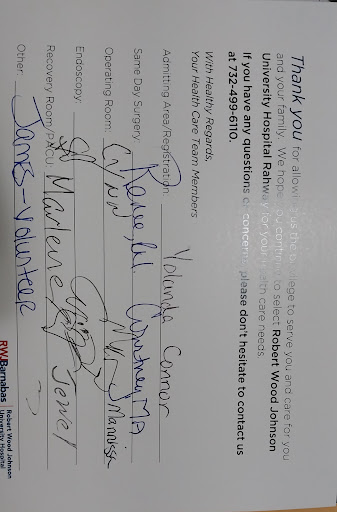 Thank you for allowing us the privilege to serve you and care for you
and your family. We hope you continue to select Robert Wood Johnson
University Hospital Rahway for your health care needs.
If you have any questions or concerns, please don't hesitate to contact us
at 732-499-6110.
With Healthy Regards,
Your Health Care Team Members
Admitting Area/Registration Yolanda Connor
Same Day Surgery Renee, W. Courtney MA
Operating Room: Lynn
Endoscopy:
Recovery Room/PACU Marlene Jewel
Other: James-Volunteer
RWJBarnabas Robert Wood Johnson
University Hospital